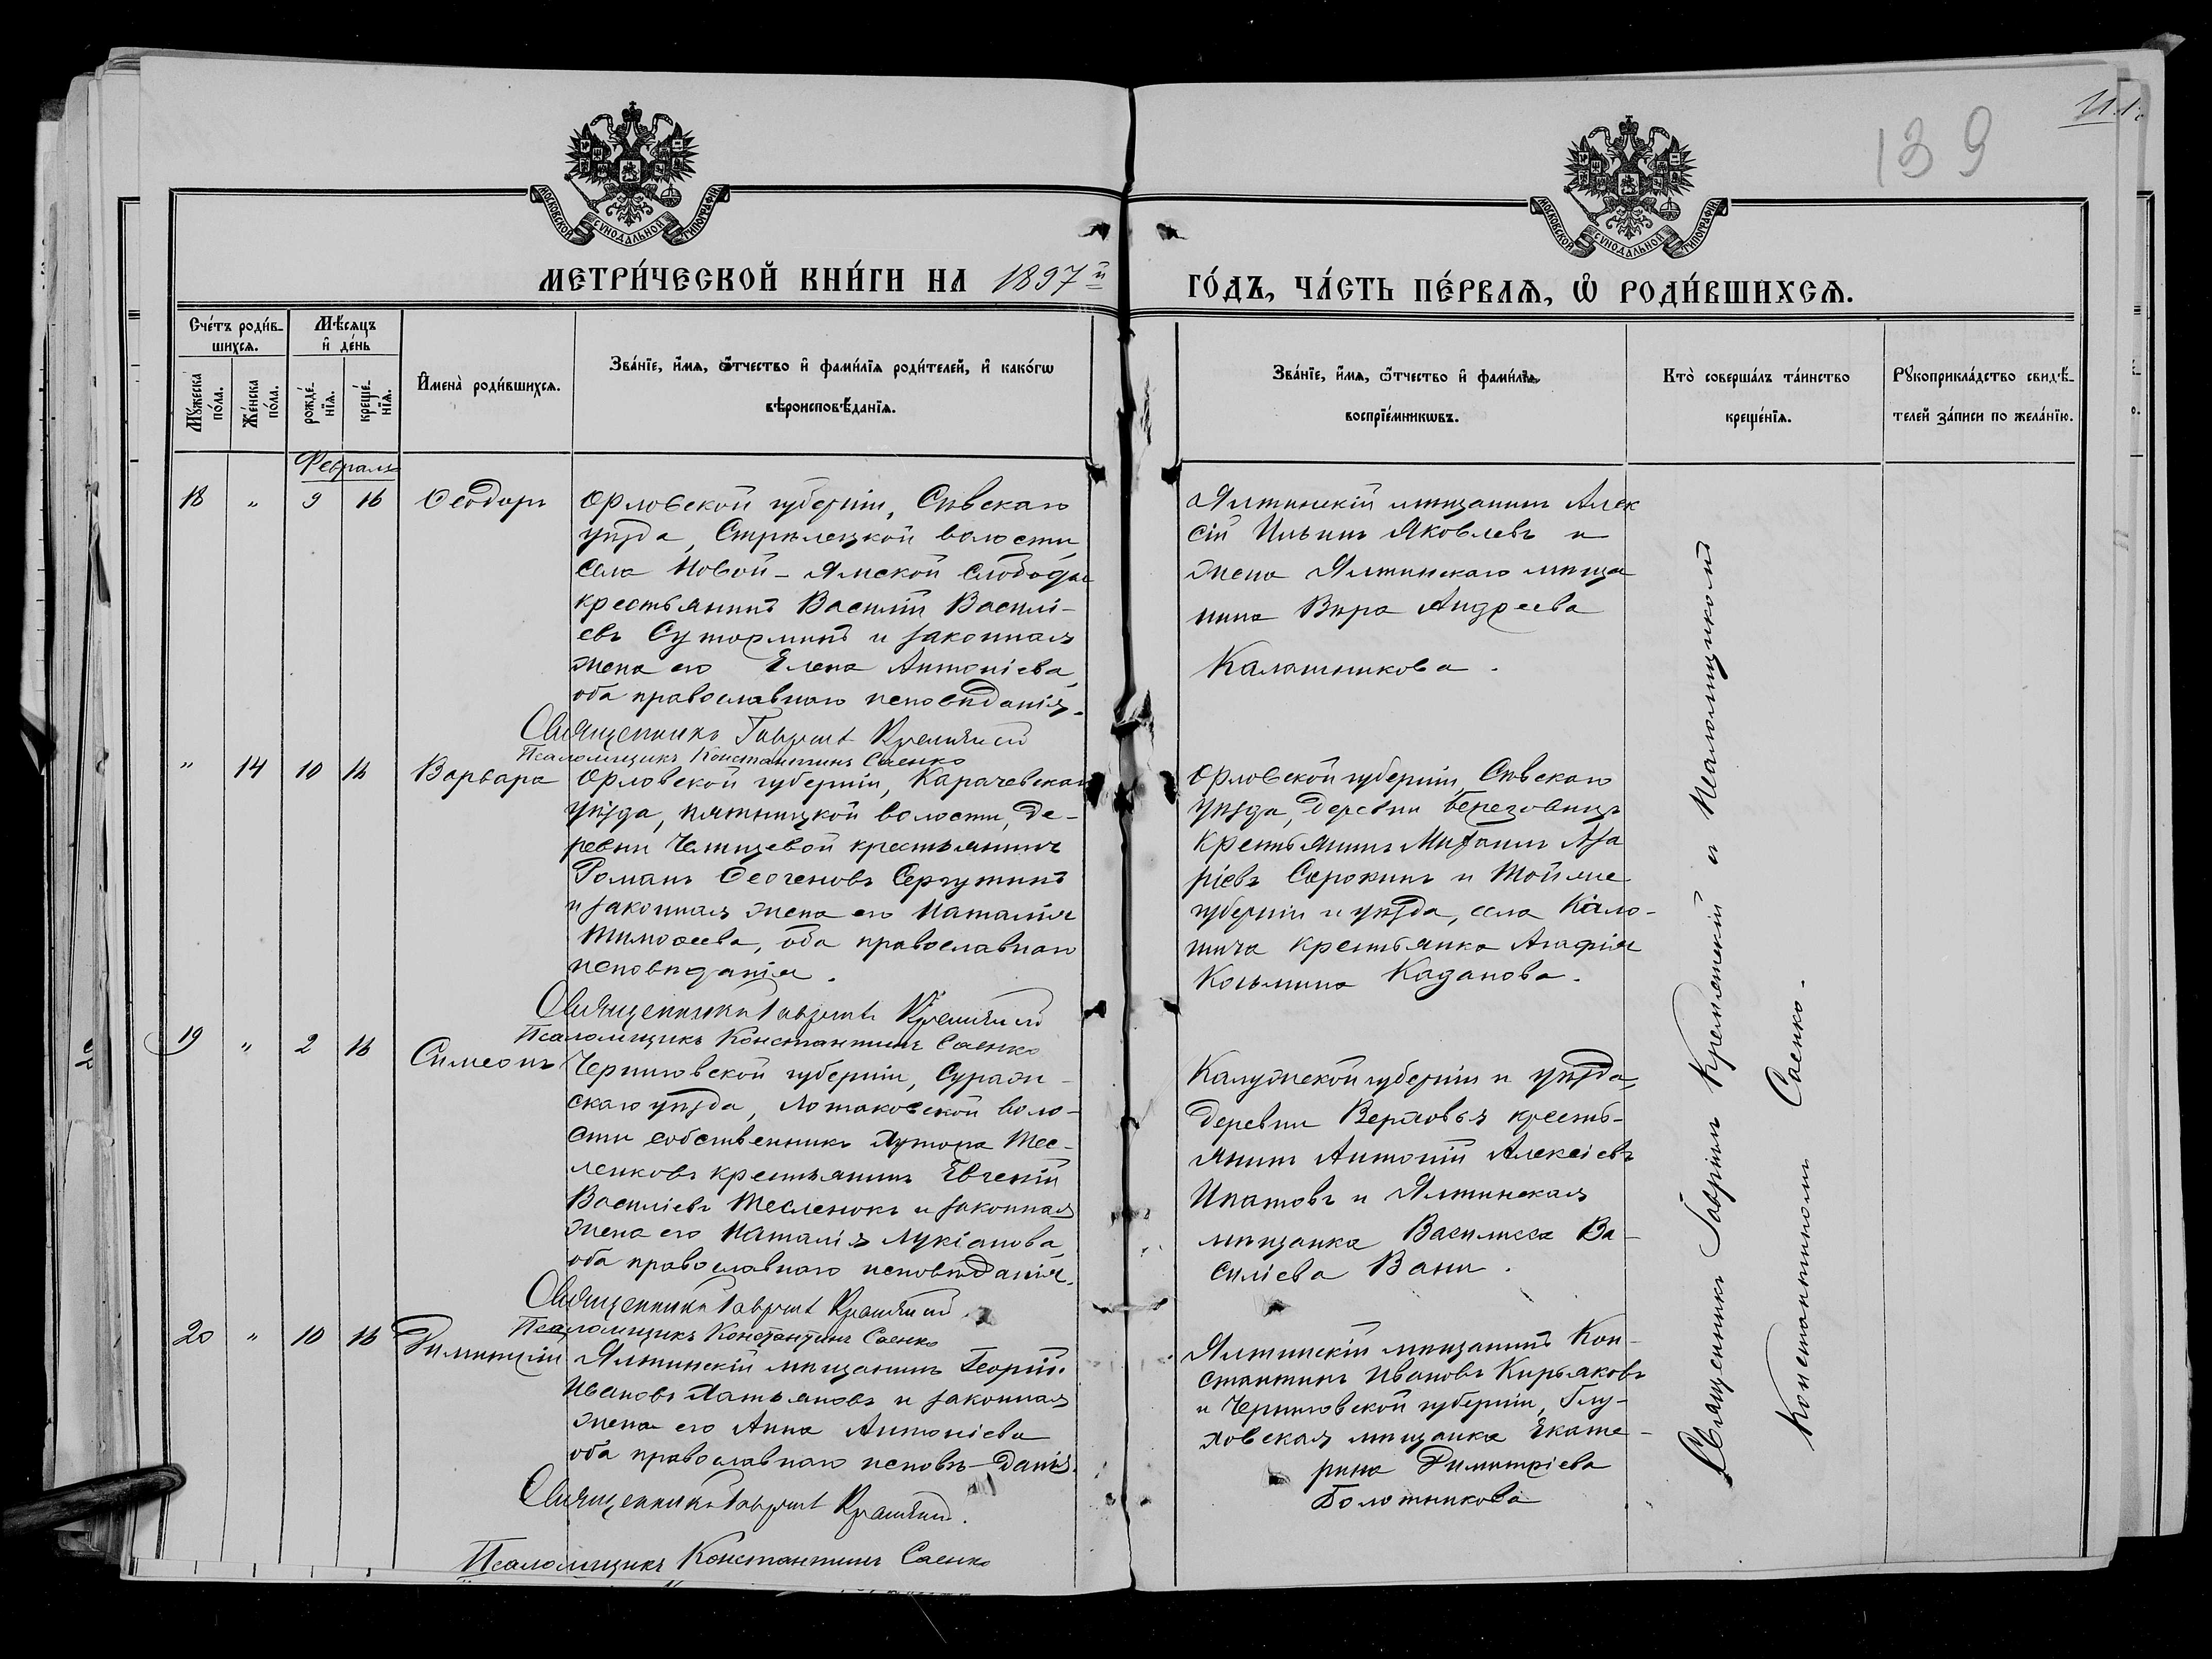 139
МОСКОВСКОЙ СѴНОДАЛЬНОЙ ТИПОГРАФІИ
МОСКОВСКОЙ СѴНОДАЛЬНОЙ ТИПОГРАФІИ
МЕТРИ́ЧЕСКОЙ КНИ́ГИ НА 1897й
ГО́ДЪ, ЧА́СТЬ ПЕ́РВАѦ, Ѽ РОДИ́ВШИХСѦ.
Сче́тъ роди́в-
шихсѧ.
Мꙋ́жеска по́ла.
Же́нска по́ла.
Мѣ́сѧцъ и҆ де́нь
рожде́-нїѧ.
креще́-нїѧ.
И҆мена̀ роди́вшихсѧ.
Зва́нїе, и҆́мѧ, ѻ҆́тчество и҆ фами́лїѧ роди́телей, и҆ како́гѡ
вѣроисповѣ́данїѧ.
Зва́нїе, и҆́мѧ, ѻ҆́тчество и҆ фами́лїѧ
воспрїе́мникѡвъ.
Кто̀ соверша́лъ та́инство
креще́нїѧ.
Рꙋкоприкла́дство свидѣ́-
телей за́писи по жела́нїю.
Февраль
18 " 9 16 Ѳеодоръ
Орловской губерніи, Сѣвскаго
уѣзда, Стрѣлецкой волости
села Новой-Ямской слободы
крестьянинъ Василій Василі-
евъ Суторминъ и законная
жена его Елена Антоніева,
оба православнаго исповѣданія.
Священникъ Гавріилъ Кремянскій
Псаломщикъ Константинъ Саенко
Ялтинскій мѣщанинъ Алек
сій Ильинъ Яковлевъ и
жена Ялтинскаго мѣща
нина Вѣра Андреева
Калашникова.
" 14 10 16 Варвара
Орловской губерніи, Карачевскаго
уѣзда, пятницкой волости, де-
ревни Челищевой крестьянинъ
Романъ Сергутинъ
и законная жена его Наталія
Тимоѳеева, оба православнаго
исповѣданія.
Священникъ Гавріилъ Кремянскій
Псаломщикъ Константинъ Саенко
Орловской губерніи, Сѣвскаго
уѣзда, деревни Березовицъ
крестьянинъ Михаилъ Аза
ріевъ Сорокинъ и той же
губерніи и уѣзда, села Кало-
тича крестьянка Агафія
Косьмина Казанова.
19 " 2 16 Симеонъ
Черниговской губерніи, Сураж-
скаго уѣзда, Лотаковской воло-
сти собственникъ хутора Тес-
ленковъ крестьянинъ Евгеній
Василіевъ Тесленокъ и законная
жена его Наталія Лукіанова
оба православнаго исповѣданія.
Священникъ Гавріилъ Кремянскій
Псаломщикъ Константинъ Саенко
Калужской губерніи и уѣзда,
деревни Верховья кресть-
янинъ Антоній Алексіевъ
Ипатовъ и Ялтинская
мѣщанка Василисса Ва-
силіева Вани.
20 " 10 16 Димитрій
Ялтинскій мѣщанинъ Георгій
Ивановъ Патьяновъ и законная
жена его Анна Антоніева
оба православнаго исповѣ-данія.
Священникъ Гавріилъ Кремянскій.
Псаломщикъ Константинъ Саенко
Ялтинскій мѣщанинъ Кон-
стантинъ Ивановъ Кирьяковъ
и Черниговской губерніи, Глу-
ховская мѣщанка Екате-
рина Димитріева
Болотникова
Священникъ Гавріилъ Кремянскій и Псаломщикомъ
Константиномъ Саенко.